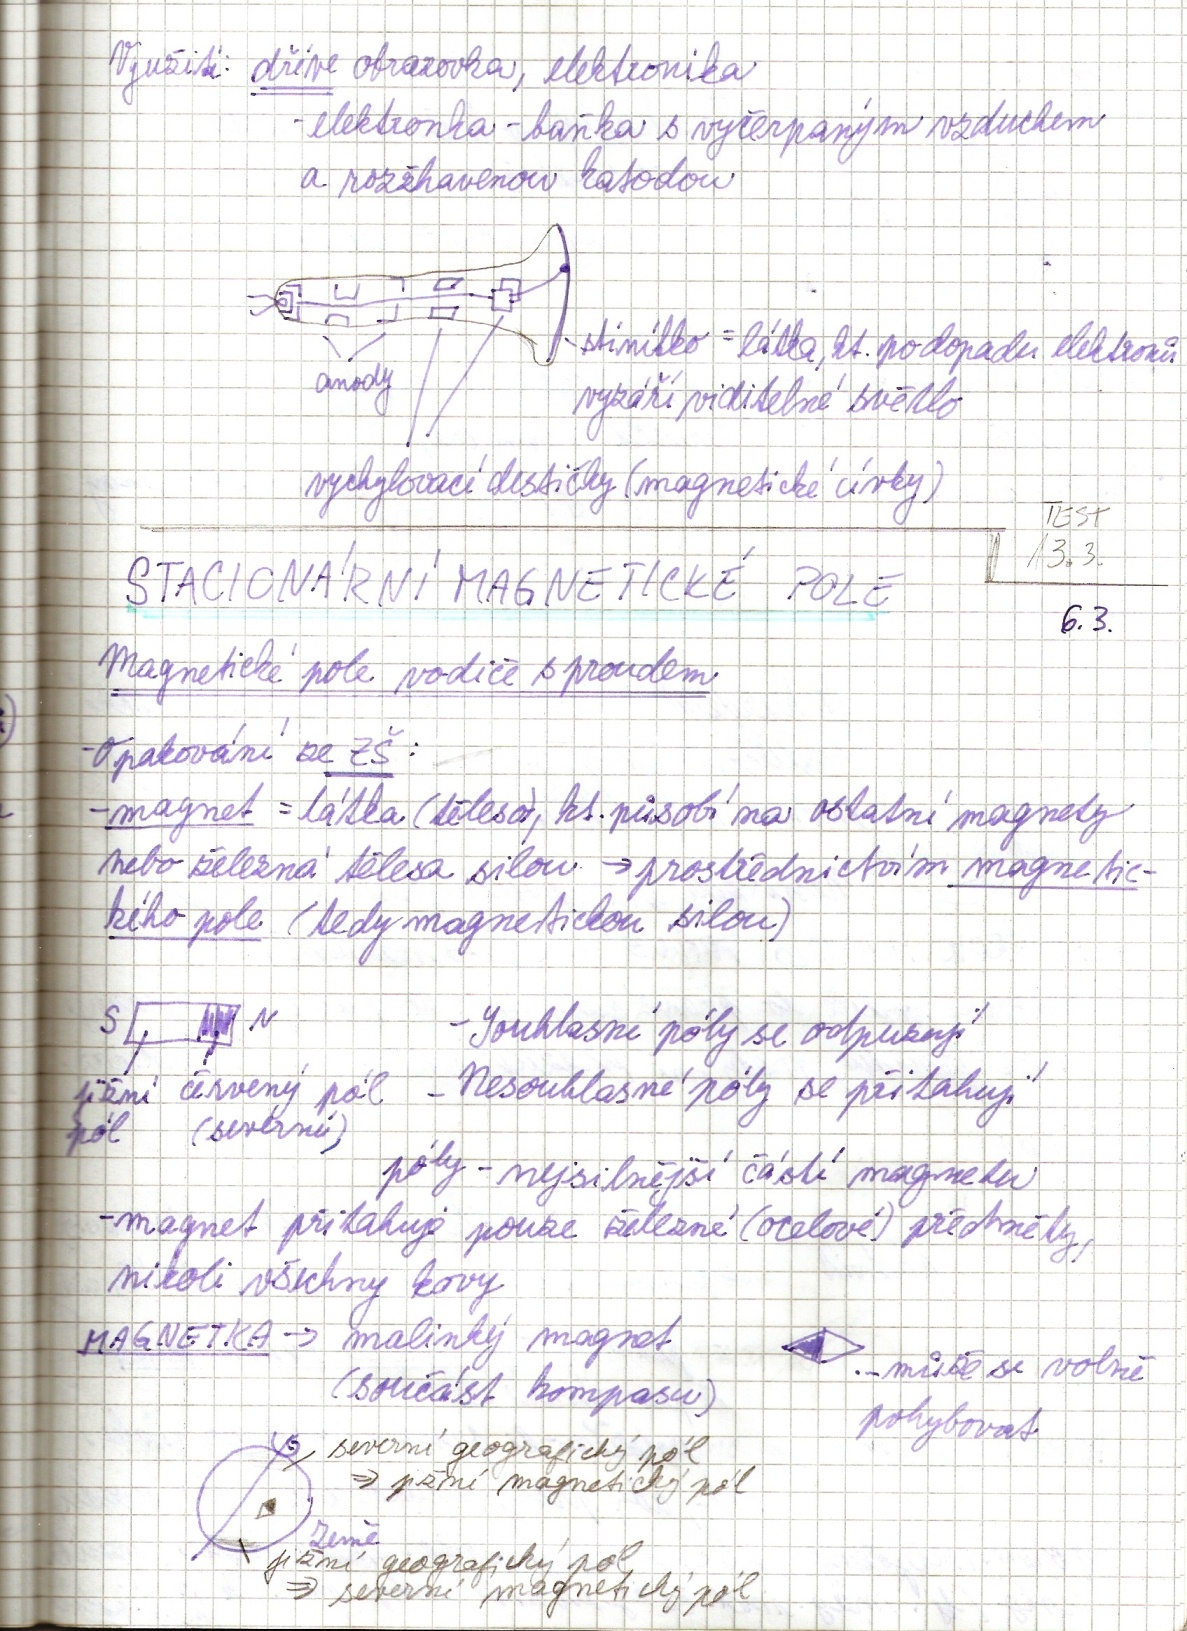 Využití: dříve obrazovka, elektronika
- elektronka - baňka s vyčerpaným vzduchem
a rozžhavenou katodou
anody
stínítko = látka, kt. po dopadu elektronů
vyzáří viditelné světlo
vychylovací destičky (magnetické cívky)
TEST
13.3.
STACIONÁRNÍ MAGNETICKÉ POLE
6.3.
Magnetické pole vodiče s proudem
- Opakování ze ZŠ:
- magnet = látka (těleso), kt. působí na ostatní magnety
nebo železná tělesa silou → prostřednictvím magnetic-
kého pole (tedy magnetickou silou)
S N
- Souhlasné póly se odpuzují
jižní červený pól - Nesouhlasné póly se přitahují
pól (severní)
póly - nejsilnější částí magnetu
- magnet přitahuje pouze železné (ocelové) předměty,
nikoli všechny kovy
MAGNETKA → malinký magnet
(součást kompasu)
...může se volně
pohybovat
S severní geografický pól
⇒ jižní magnetický pól
Země
jižní geografický pól
⇒ severní magnetický pól